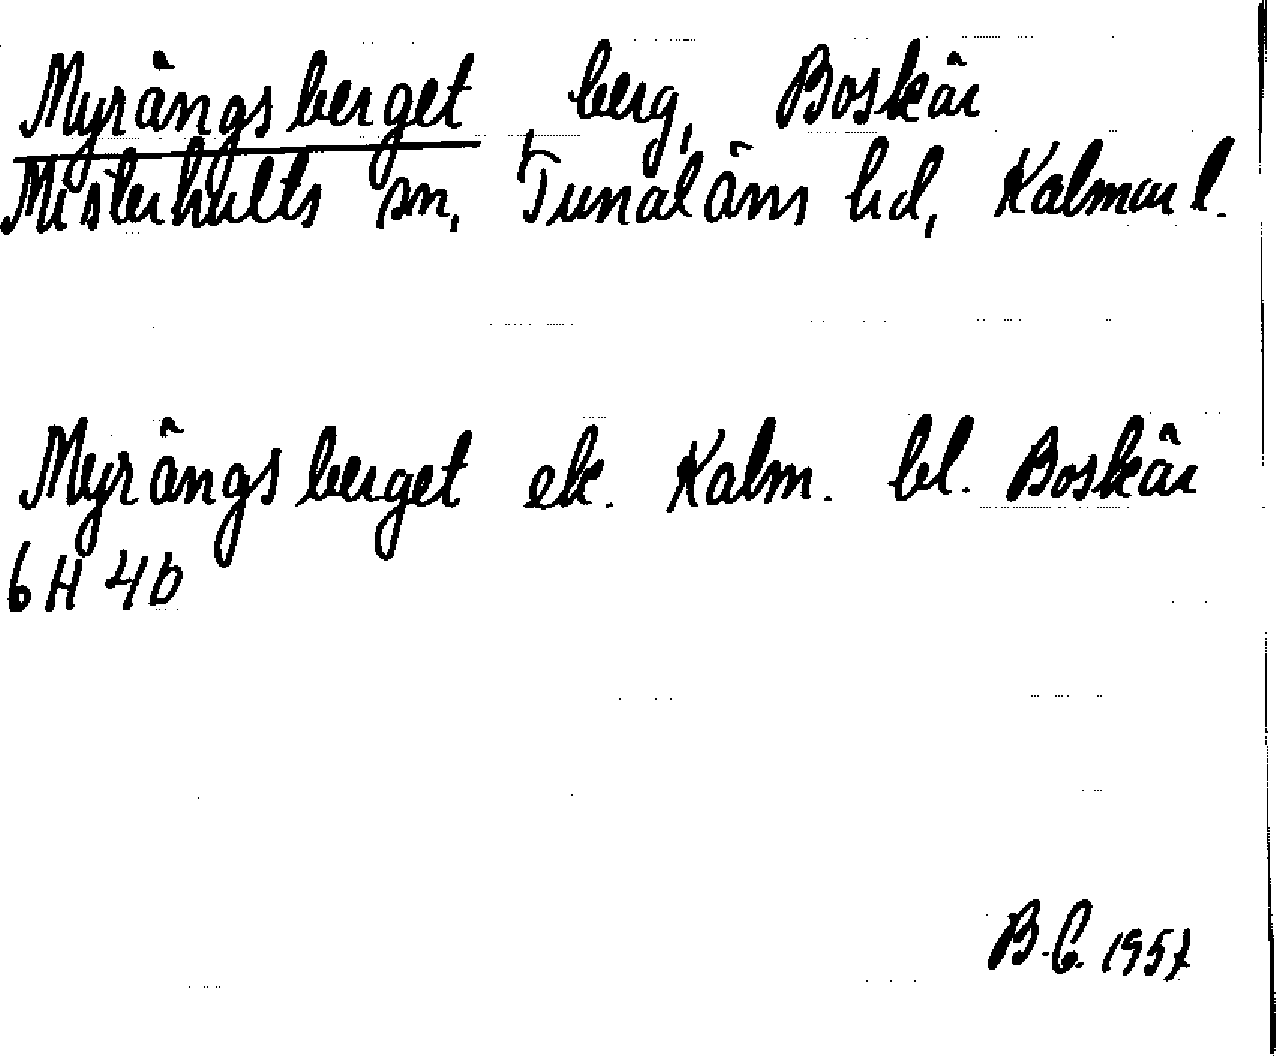 Myrängsberget, berg, Boskär
Misterhults sn, Tunaläns hd, Kalmar l.
Myrängsberget ek. Kalm. bl. Boskär
6H 4b
B.C. 1957